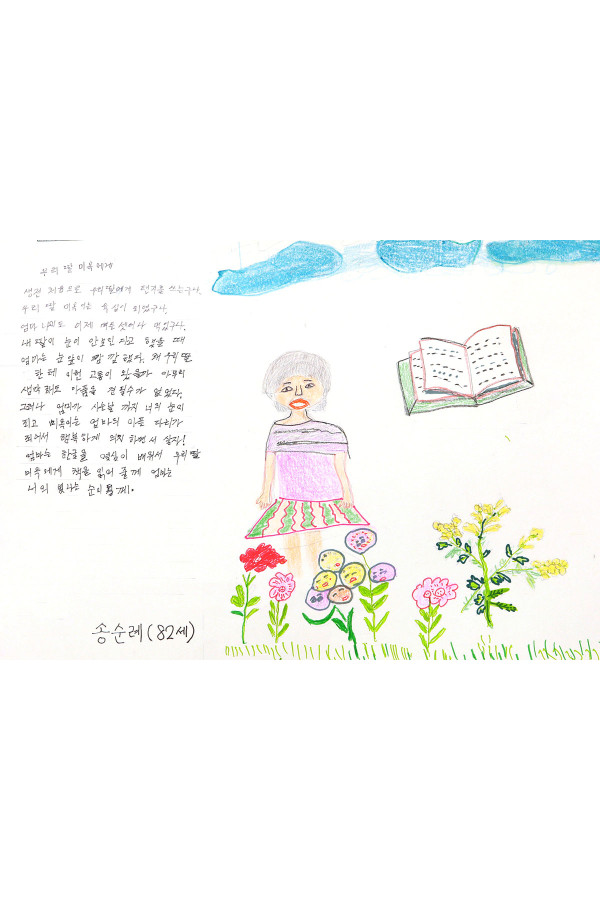 우리 딸 미옥에게
생전 처음으로 우리 딸에게 편지를 쓰는구나.
우리 딸 미옥이는 육십이 되었구나.
엄마 나이도 이제 여든 살이나 먹었구나.
내 딸이 눈이 안보인다고 했을 때
엄마는 눈 앞이 깜깜했다. 왜 우리 딸
한테 이런 고통이 왔을까 아무리
생각해도 아픔을 견딜수가 없었다.
그러나 엄마가 사는날 까지 너의 눈이
되고 미옥이는 엄마의 아픈 다리가
되어서 행복하게 의지하면서 살자!
엄마는 한글을 열심히 배워서 우리 딸
미옥에게 책을 읽어 줄께 엄마는
너의 빛나는 눈이 될께.
송순례(82세)